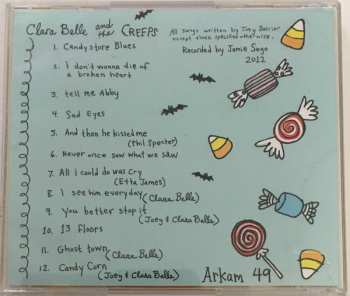 Clara Belle and the CREEPS
All songs written by Joey Balzer
except where specified otherwise.
Recorded by Jamie Sego
2012
1. Candy store Blues
2. I don't wanna die of
a broken heart
3. tell me Abby
4. Sad Eyes
5. And then he kissed me
(Phil Specter)
6. Never once saw what we saw
7. All I could do was Cry
(Etta James)
8. I see him everyday
(Clara Belle)
9. You better stop it
(Joey & Clara Belle)
10. 13 Floors
11. Ghost town
(Clara Belle)
12. Candy Corn
(Joey & Clara Belle)
Arkam 49